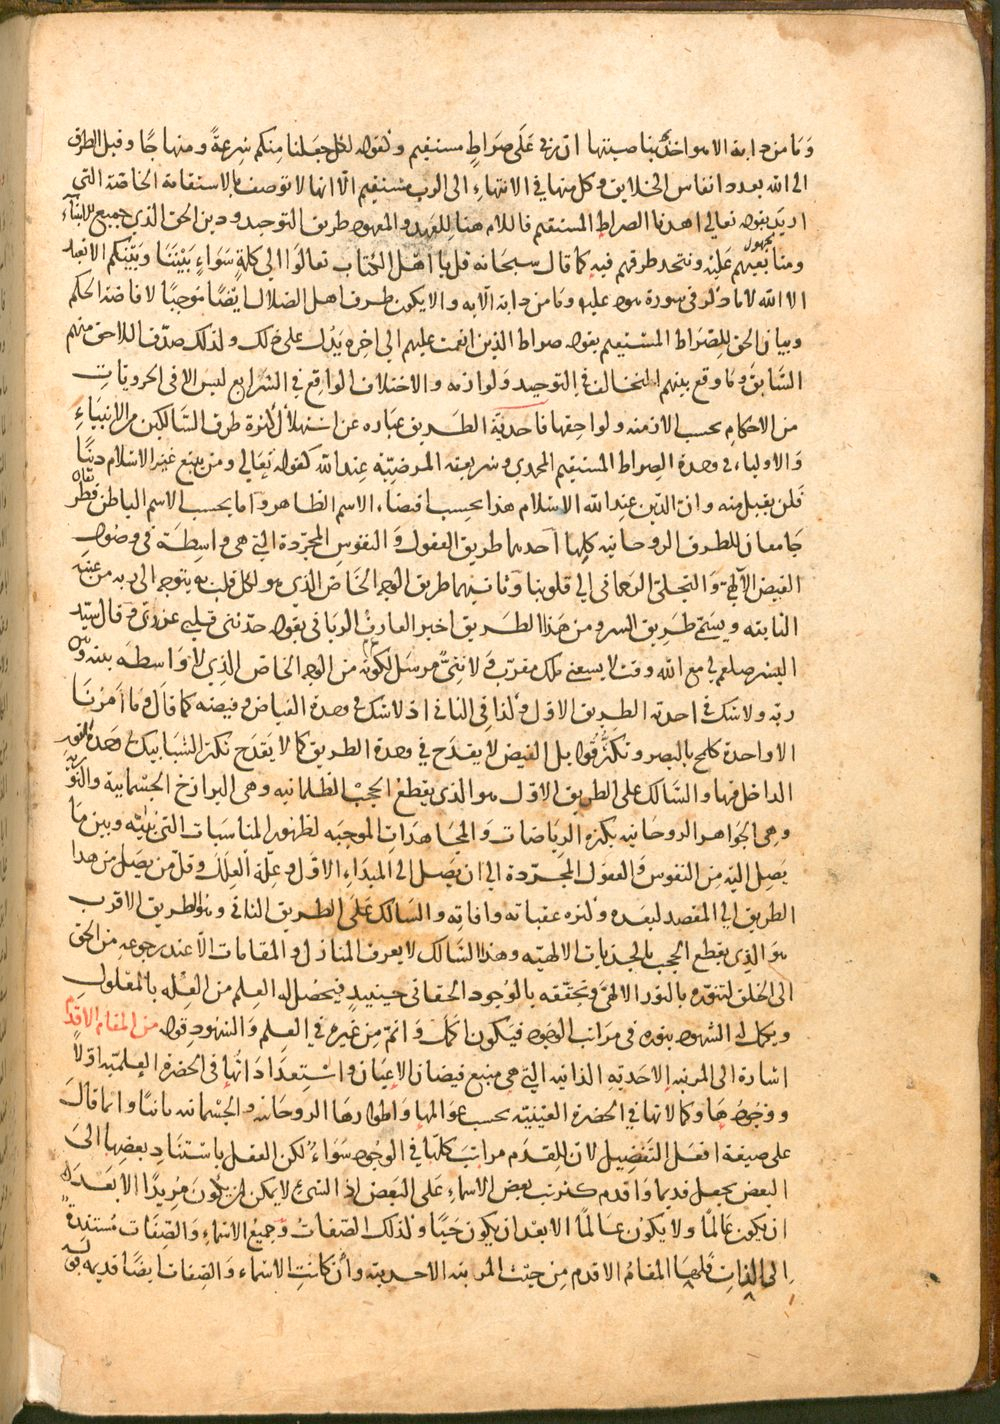 وما من دابة الا هو اخذ بناصيتها ان ربي على صراط مستقيم وكقوله لكل جعلنا منكم شرعة ومنهاجا وقيل الطرق
الى الله بعدد انفاس الخلايق وكل منها في الانتهاء الى الرب مستقيم الا انها لا توصف بالاستقامة الخاصة التي
اريد بقوله تعالى اهدنا الصراط المستقيم فاللام هنا للعهد والمعهود طريق التوحيد ودين الحق الذي جميع الانبياء
ومتابعيهم عليه وتتحد طرقهم فيه كما قال سبحانه قل يا اهل الكتاب تعالوا الى كلمة سواء بيننا وبينكم الا نعبد
الا الله لا ما ذكر في سورة هود عليه وما من دابة الاية والا يكون طرق اهل الضلال ايضا موجبا لافاضة الحكم
وبيان الحق للصراط المستقيم بقوله صراط الذين انعمت عليهم الى اخره يدل على ذلك ولذلك صدق اللاحق منهم
السابق وما وقع بينهم التخالف في التوحيد ولوازمه والاختلاف الواقع في الشرايع ليس الا في الجزويات
من الاحكام بحسب الازمنة ولواحقها فاحدية الطريق عبارة عن استهلاك كثرة طرق السالكين من الانبياء
والاولياء في وحدة الصراط المستقيم المحمدي وشريعته المرضية عند الله كقوله تعالى ومن يبتغ غير الاسلام دينا
فلن يقبل منه وان الدين عند الله الاسلام هذا بحسب اقتضاء الاسم الظاهر واما بحسب الاسم الباطن فطريقان
جامعان للطرق الروحانية كلها احدهما طريق العقول والنفوس المجردة التي هي واسطة في وصول
الفيض الالهي والتجلي الرحماني الى قلوبنا وثانيهما طريق الوجه الخاص الذي هو لكل قلب به يتوجه الى ربه من عينه
الثابتة ويسمى طريق السر ومن هذا الطريق اخبر العارف الرباني بقوله حدثني قلبي عن ربي وقال سيد
البشر صلعم لي مع الله وقت لا يسعني ملك مقرب ولا نبي مرسل لكونه من الوجه الخاص الذي لا واسطة بينه وبين
ربه ولا شك في احدية الطريق الاول وكذا في الثاني اذ لا شك في وحدة الفياض وفيضه كما قال وما امرنا
الا واحدة كلمح بالبصر وتكثر قوابل الفيض لا يقدح في وحدة الطريق كما لا يقدح تكثر الشبابيك وحدة النور
الداخل فيها والسالك على الطريق الاول هو الذي يقطع الحجب الظلمانية وهي البرازخ الجسمانية والنورية
وهي الجواهر الروحانية بكثرة الرياضات والمجاهدات الموجبة لظهور المناسبات التي بينه وبين ما
يصل اليه من النفوس والعقول المجردة الى ان يصل الى المبداء الاول وعلة العلل وقل من يصل من هذا
الطريق الى المقصد لبعده وكثرة عقباته وافاته والسالك على الطريق الثاني وهو الطريق الاقرب
هو الذي يقطع الحجب بالجذبات الالهية وهذا السالك لا يعرف المنازل والمقامات الا عند رجوعه من الحق
الى الخلق لتنوره بالنور الالهي وتحققه بالوجود الحقاني حينئذ فيحصل له العلم من العلة بالمعلول
ويكمل له الشهود بنوره في مراتب الوجود فيكون اكمل واتم من غيره في العلم والشهود قوله من المقام الاقدم
اشارة الى المرتبة الاحدية الذاتية التي هي منبع فيضان الاعيان واستعداداتها في الحضرة العلمية اولا
ووجودها وكمالاتها في الحضرة العينية بحسب عوالمها واطوارها الروحانية والجسمانية ثانيا وانما قال
على صيغة افعل التفضيل لان للقدم مراتب كلها في الوجود سواء لكن العقل باستناد بعضها الى
البعض يجعل قديما واقدم كترتب بعض الاسماء على البعض اذ الشيء لا يمكن ان يكون مريدا الا بعد
ان يكون عالما ولا يكون عالما الا بعد ان يكون حيا وكذلك الصفات وجميع الاسماء والصفات مستندة
الى الذات فلها المقام الاقدم من حيث المرتبة الاحدية وان كانت الاسماء والصفات ايضا قديمة قوله